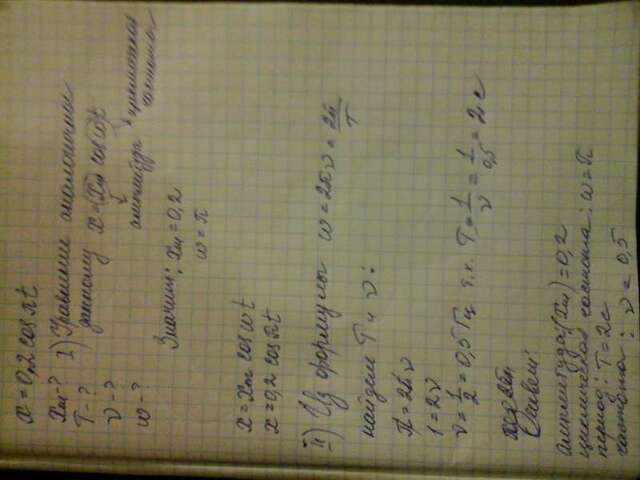 x = 0,2 cos πt
xm - ?
T - ?
ν - ?
ω - ?
1) Уравнение аналогичное
данному x = xm cos ωt
амплитуда
циклическая
частота
Значит: xm = 0,2
ω = π
x = xm cos ωt
x = 0,2 cos πt
ii) Из формулы ω = 2πν = 2π/T
найдем T и ν:
π = 2πν
1 = 2ν
ν = 1/2 = 0,5 Гц т.к. T = 1/ν = 1/0,5 = 2 с
Ответ:
амплитуда (xm) = 0,2
циклическая частота: ω = π
период: T = 2c
частота: ν = 0,5